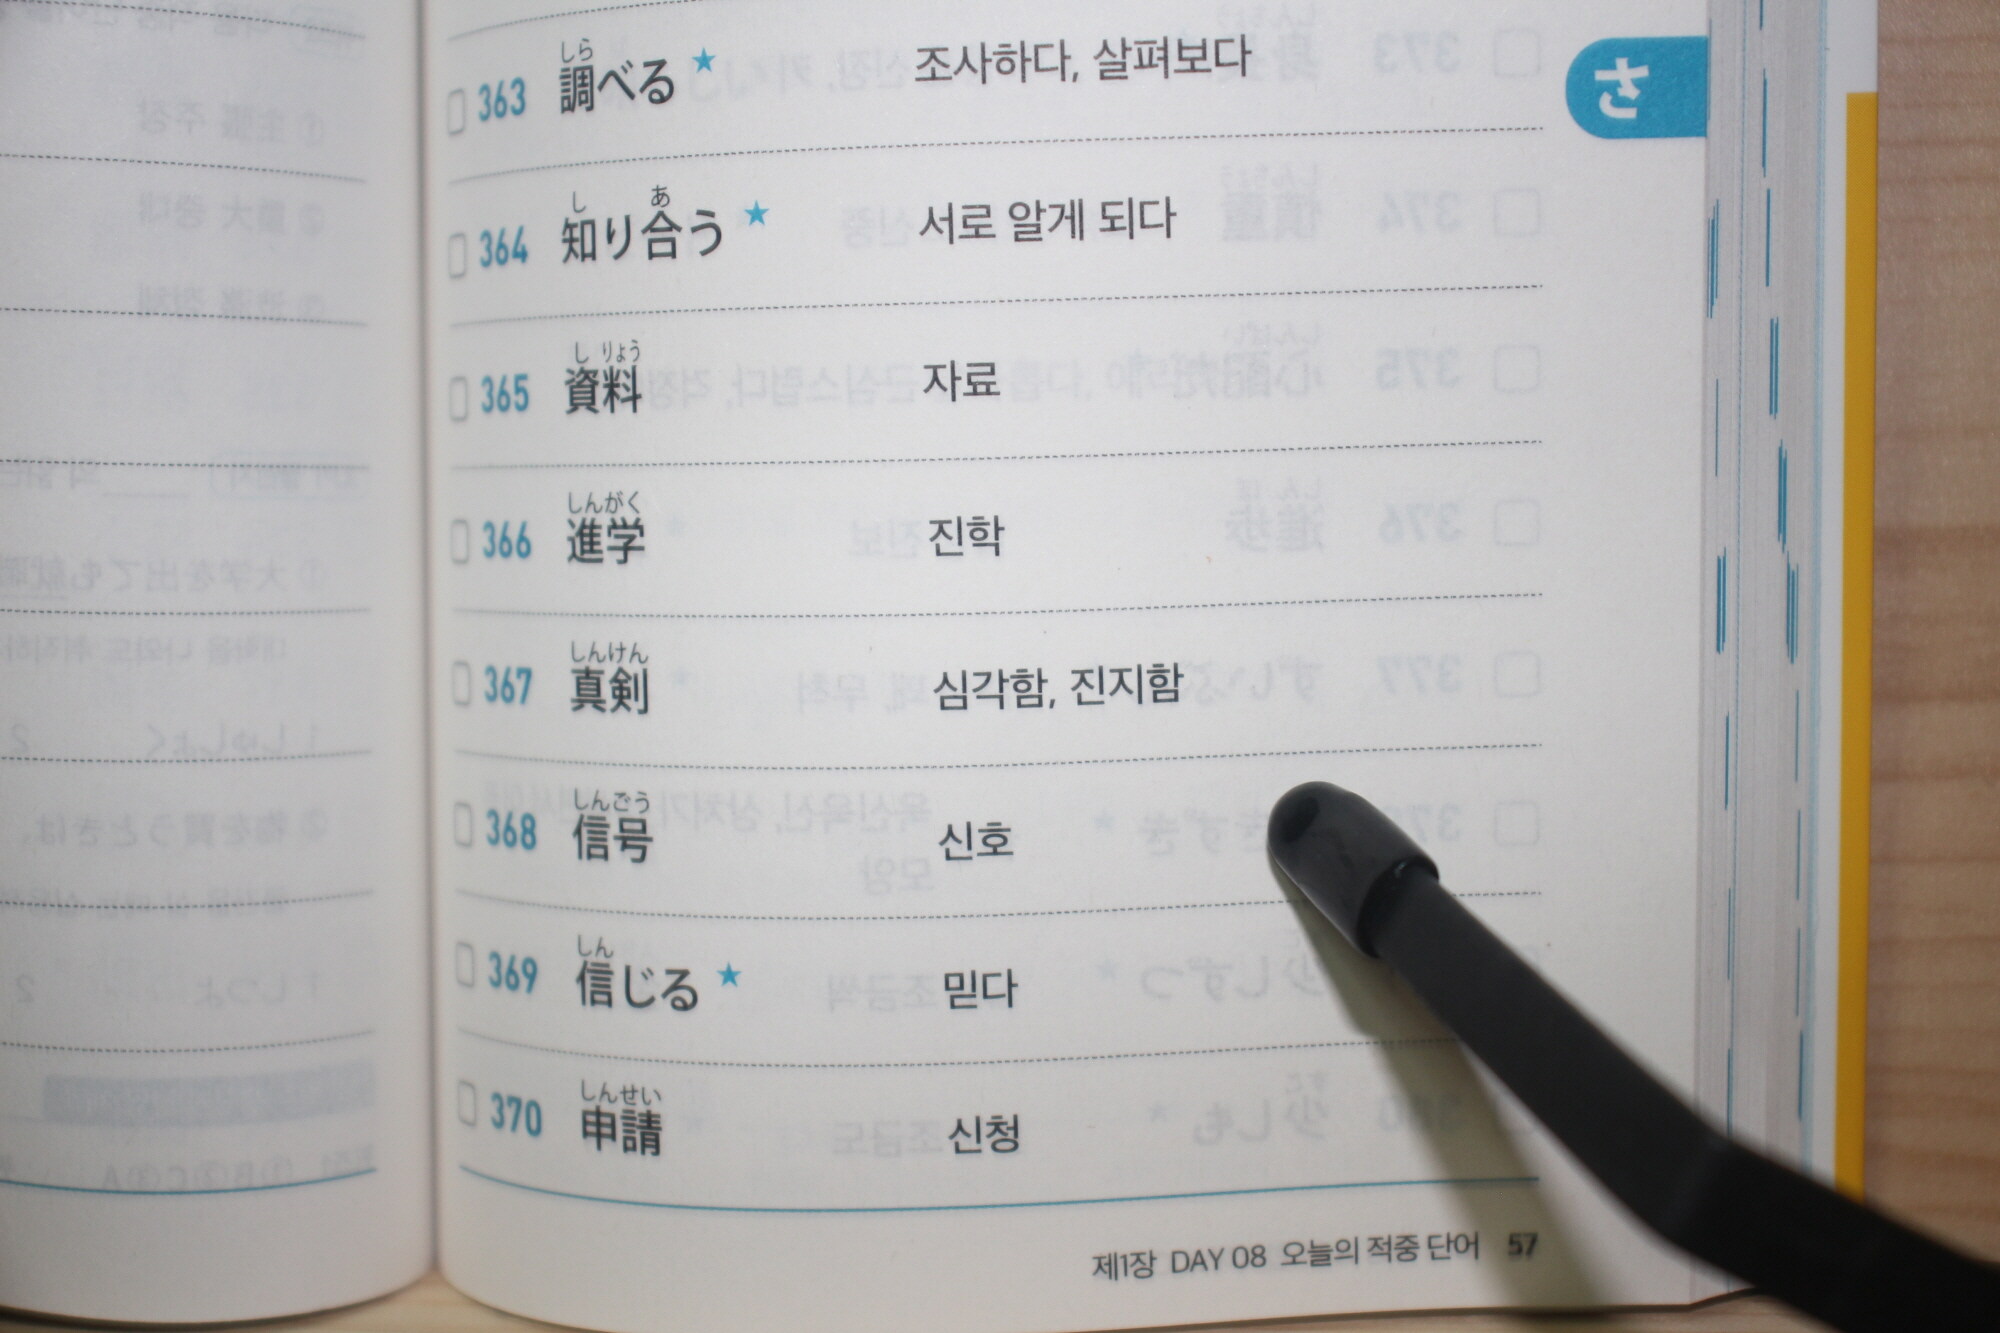 さ
しら
363 調べる ★ 조사하다, 살펴보다
し あ
364 知り合う ★ 서로 알게 되다
し りょう
365 資料 자료
しんがく
366 進学 진학
しんけん
367 真剣 심각함, 진지함
しんごう
368 信号 신호
しん
369 信じる ★ 믿다
しんせい
370 申請 신청
제1장 DAY 08 오늘의 적중 단어 57